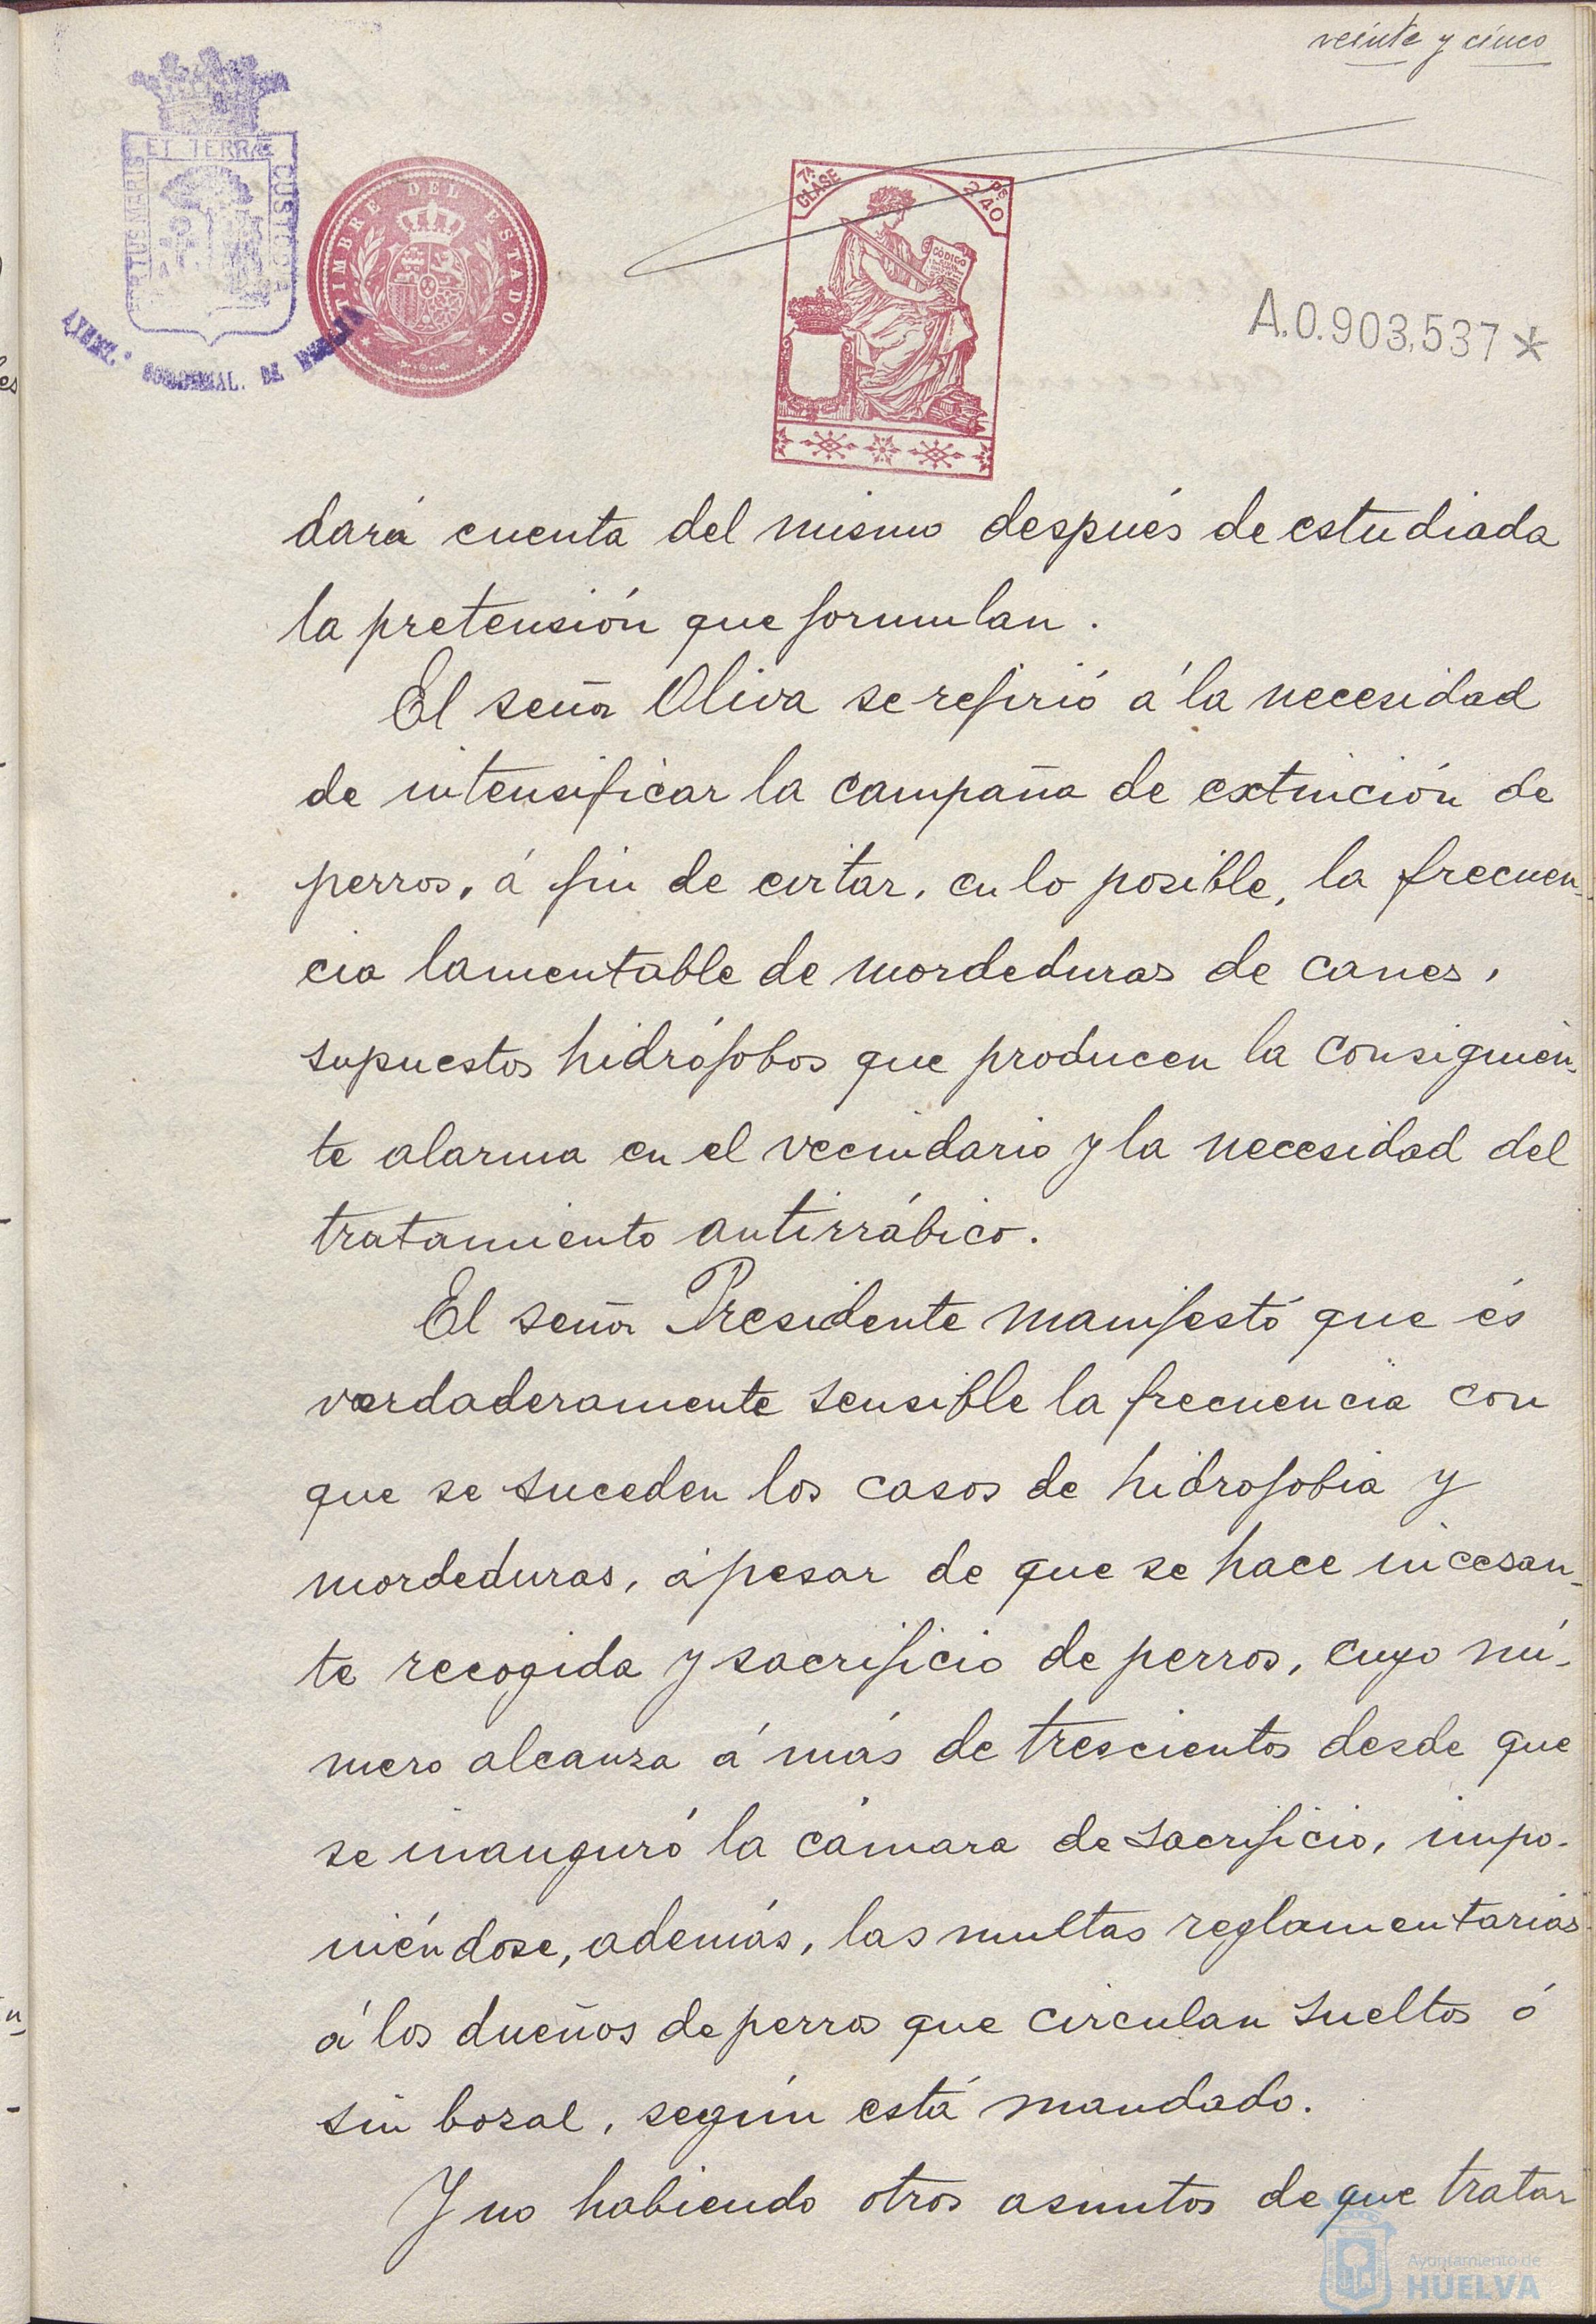 veinte y cinco
ET TERRÆ
CUSTODIA
TIMBRE DEL ESTADO
7ª CLASE
2 Ps 40
CÓDIGO
A.0.903,537*
dará cuenta del mismo después de estudiada
la pretensión que formulan.
El señor Oliva se refirió á la necesidad
de intensificar la campaña de extinción de
perros, á fin de evitar, en lo posible, la frecuen-
cia lamentable de mordeduras de canes,
supuestos hidrófobos que producen la consiguien-
te alarma en el vecindario y la necesidad del
tratamiento antirrábico.
El señor Presidente manifestó que és
verdaderamente sensible la frecuencia con
que se suceden los casos de hidrofobia y
mordeduras, á pesar de que se hace incesan-
te recogida y sacrificio de perros, cuyo nú-
mero alcanza á más de trescientos desde que
se inauguró la cámara de sacrificio, impo-
niéndose, además, las multas reglamentarias
á los dueños de perros que circulan sueltos ó
sin bozal, según está mandado.
Y no habiendo otros asuntos de que tratar
Ayuntamiento de
HUELVA